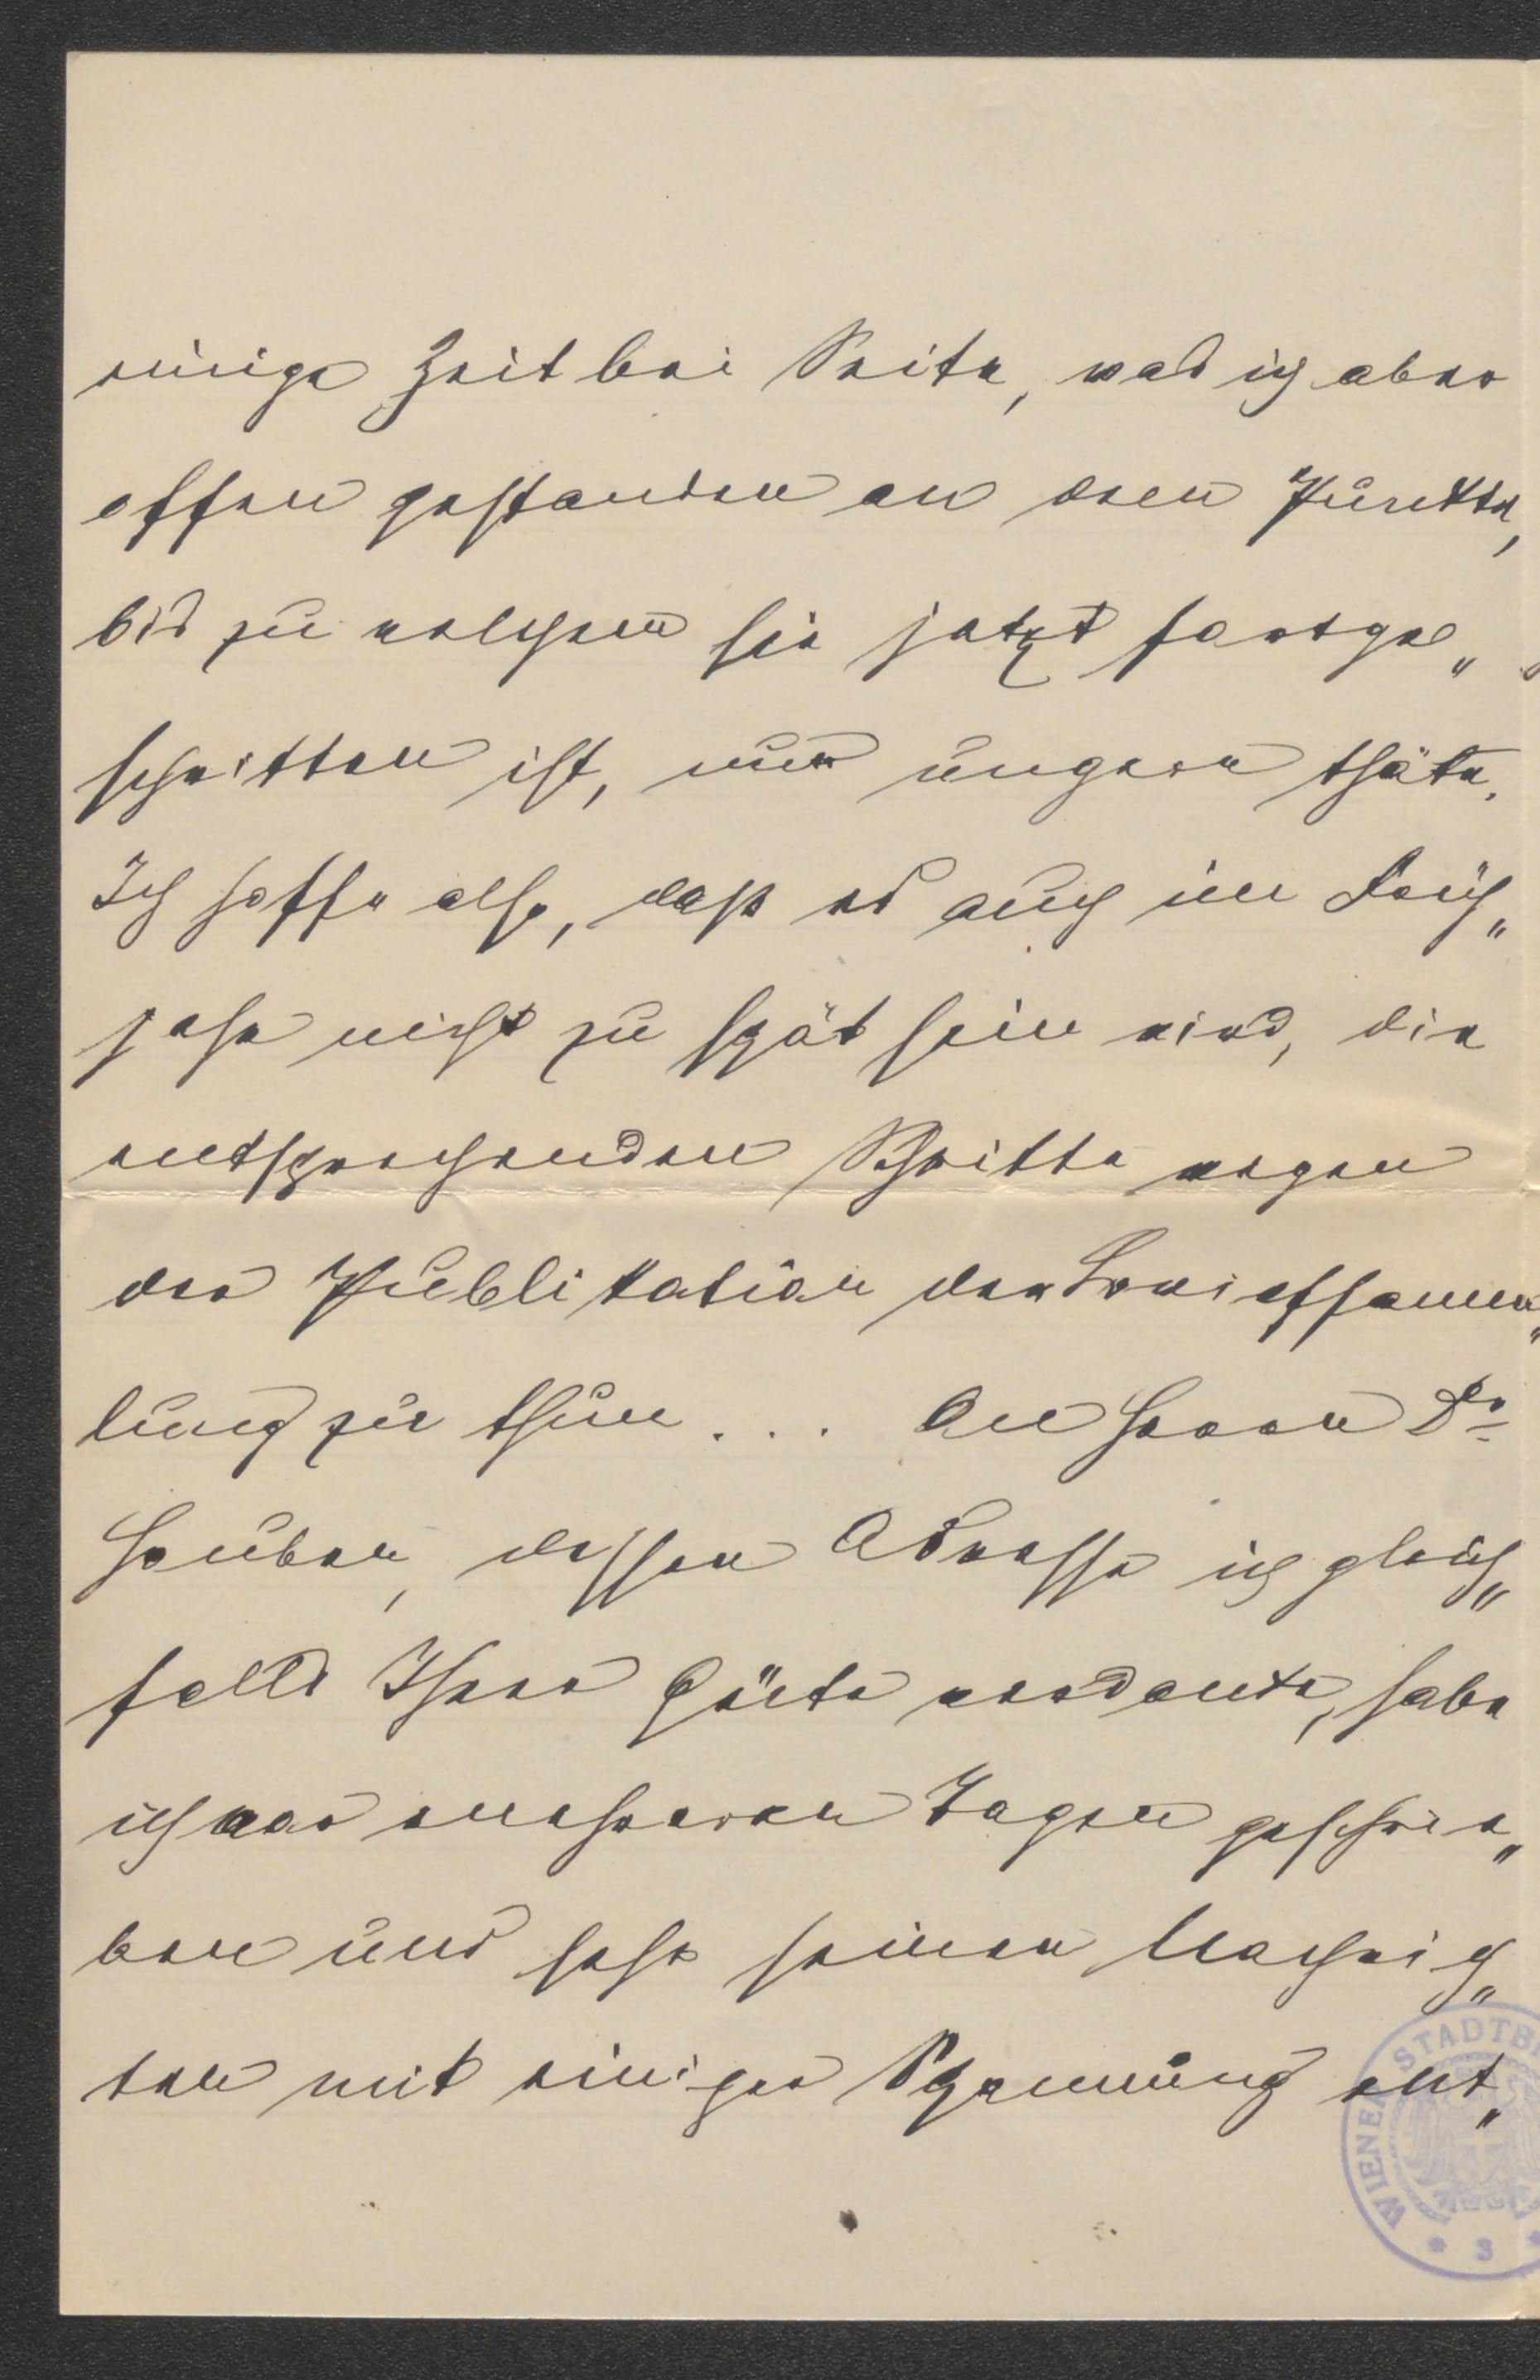 einige Zeit bei Seite, was ich aber
offen gestanden an dem Punkte,
bis zu welchem sie jetzt fortge„
schritten ist, nur ungern thäte.
Ich hoffe also, dass es auch im Früh„
jahr nicht zu spät sein wird, die
entsprechenden Schritte wegen
der Publikation der Briefsamm„
lung zu thun... An Herrn Dr
Houben, dessen Adresse ich gleich„
falls Ihrer Güte verdanke, habe
ich vor mehreren Tagen geschrie„
ben und sehe seinen Nachrich„
ten mit einiger Spannung ent„
WIENER STADTBI
3